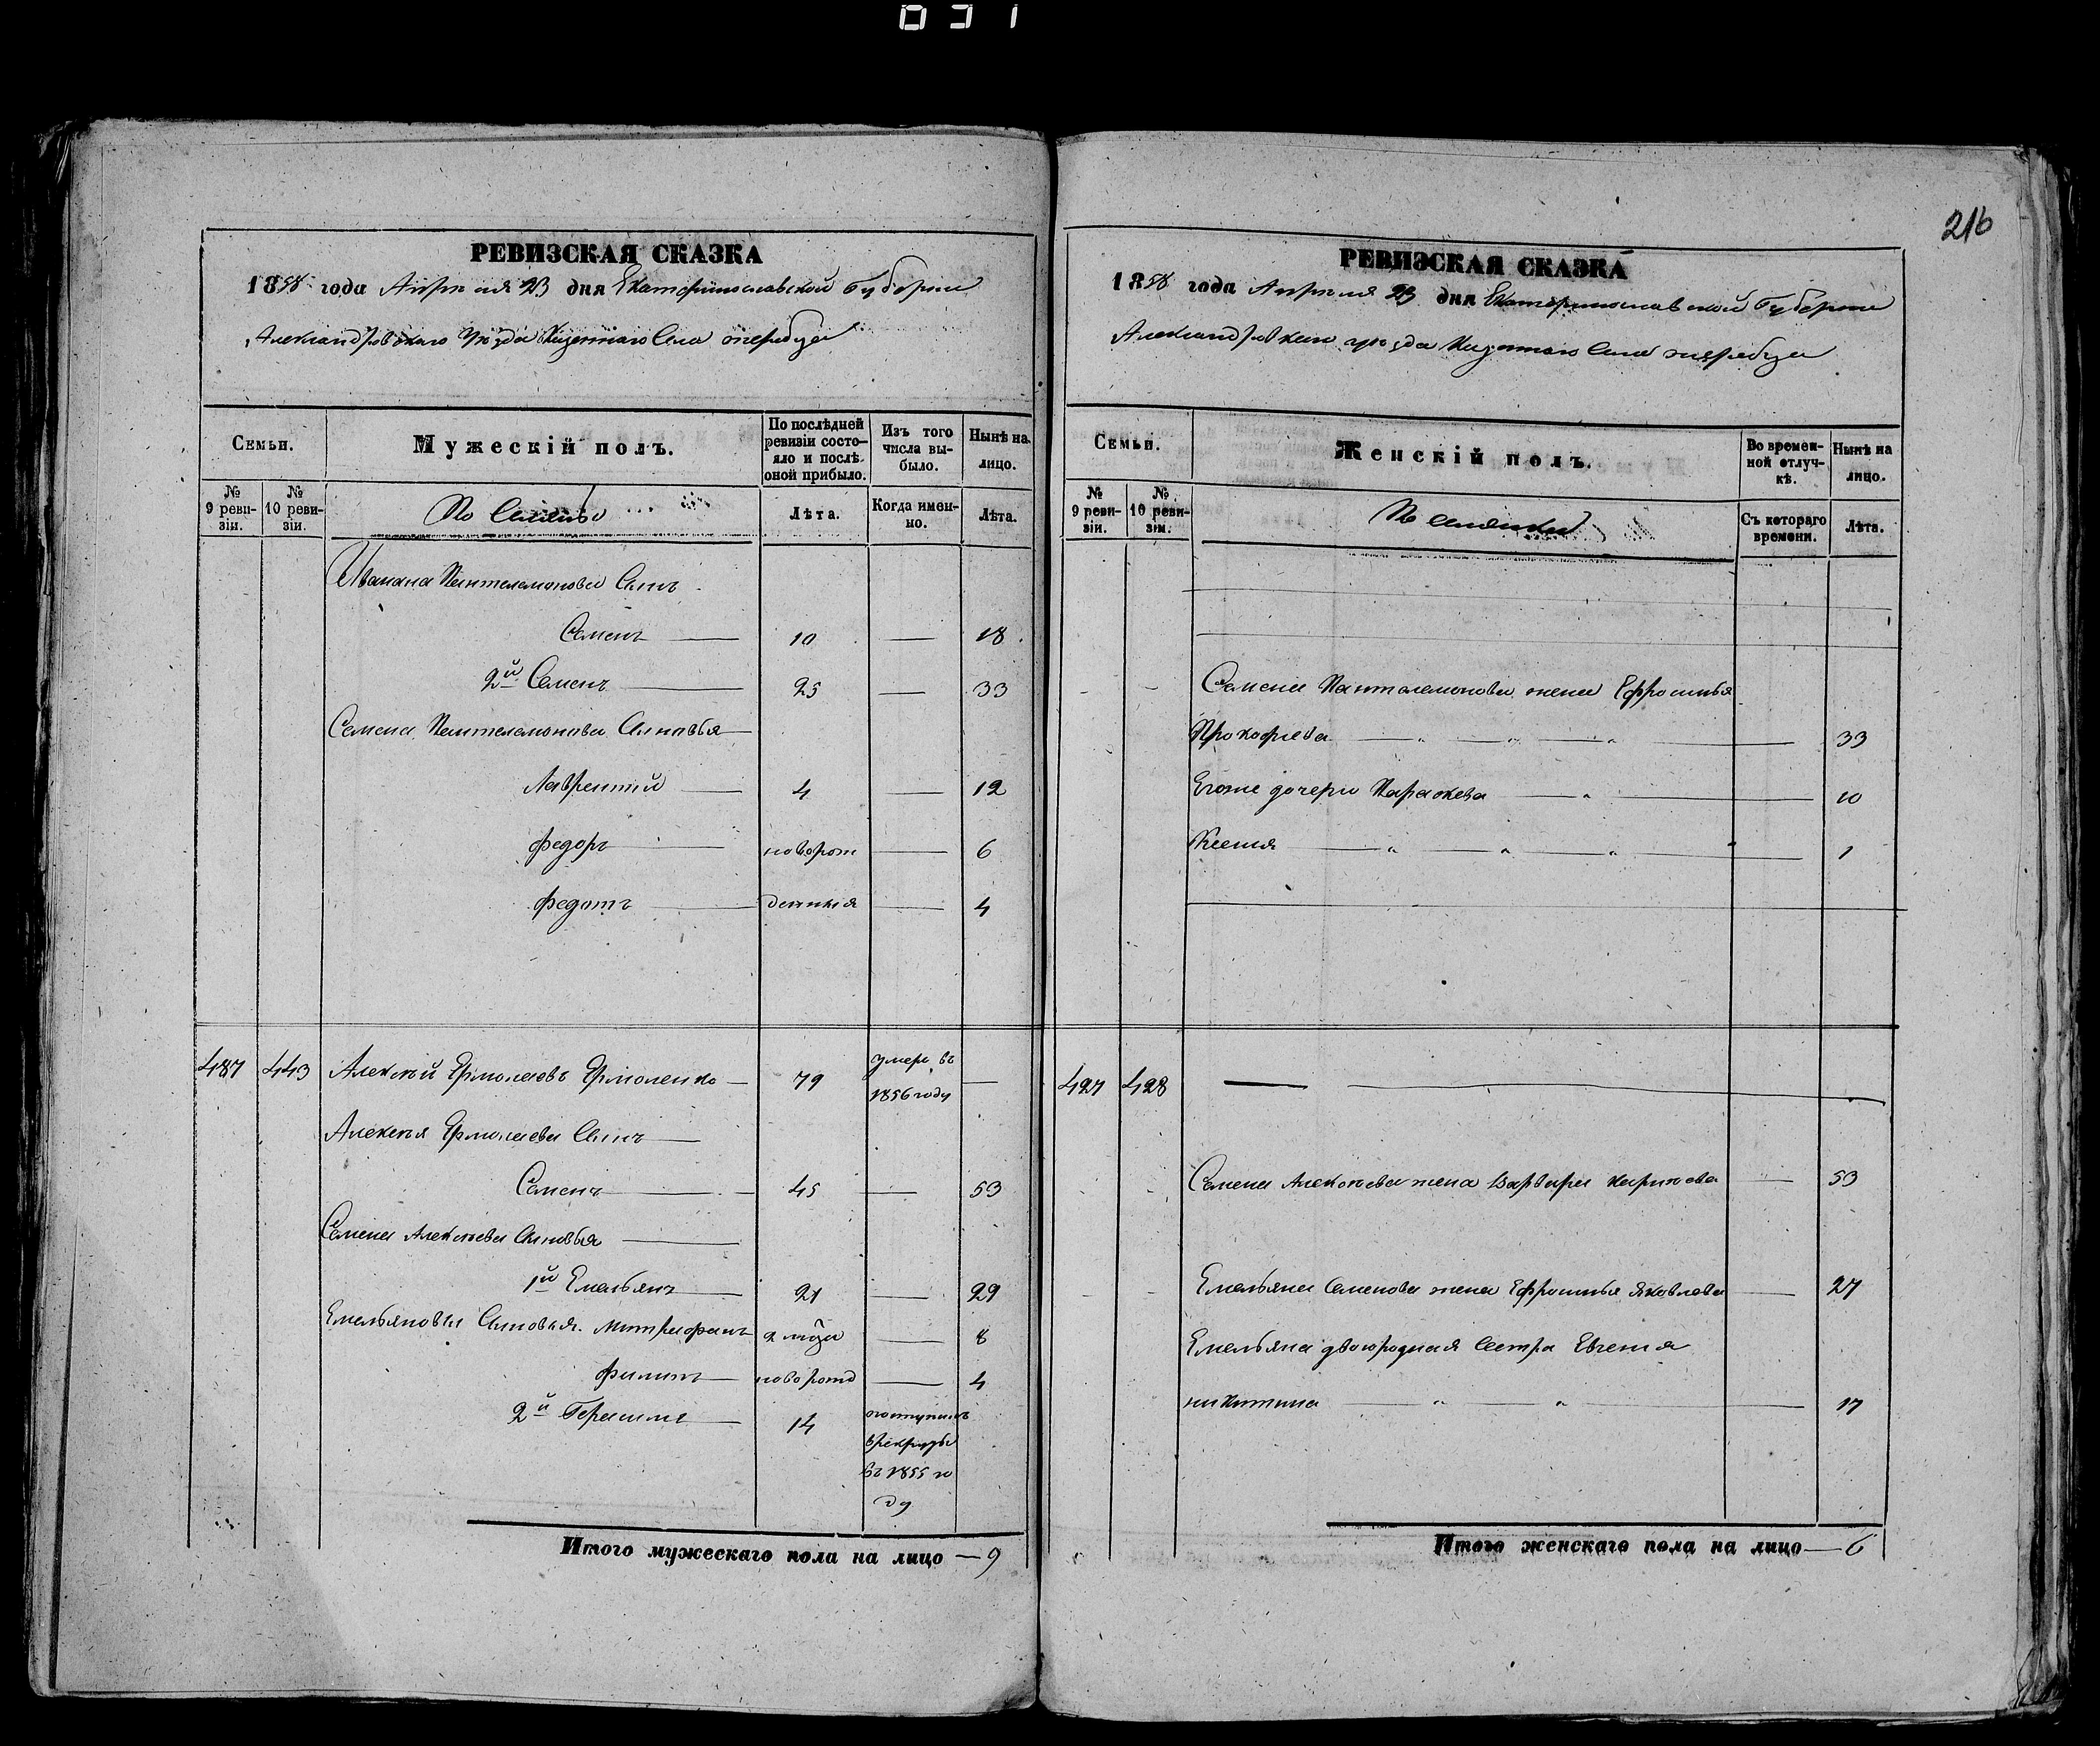 031
216
РЕВИЗСКАЯ СКАЗКА
1858 года Апреля 23 дня Екатеринославской Губернии
Александровскаго Уезда Казеннаго Села Жеребца
Семьи.
Мужескій полъ.
По послѣдней ревизіи состо-
яло и послѣ
оной прибыло.
Изъ того
числа вы-
было.
Нынѣ на
лицо.
№
9 реви-
зіи.
№
10 реви-
зіи.
Лѣта.
Когда имен-
но.
Лѣта.
Ивана Пантелемонова Сынъ
Семенъ 10 18
2й Семенъ 25 33
Семена Пантелемонова Сыновья
Лаврентий 4 12
Федоръ новорож 6
Федотъ 4
487 443 Алексѣй Ермолаевъ Ермоленко 79 умеръ въ
1856 году
Алексѣя Ермолаева Сынъ
Семенъ 45 53
Семена Алексѣева Сыновья
1й Емельянъ 21 29
Емельяновы Сыновья Митрофанъ 8
Филипъ новорожд 4
2й Герасимъ 14 поступилъ
в рекруты
въ 1855 го
ду
Итого мужескаго пола на лицо — 9
РЕВИЗСКАЯ СКАЗКА
1858 года Апреля 23 дня Екатеринославской Губернии
Александровскаго уезда Казеннаго Села Жеребца
Семьи.
Женскій полъ.
Во времен-
ной отлуч-
кѣ.
Нынѣ на
лицо.
№
9 реви-
зіи.
№
10 реви-
зіи.
Съ котораго
времени.
Лѣта.
Семена Пантелемонова жена Ефросинья
Прокофьева 33
Его же дочери Параскева 10
Ксения 1
427 428
Семена Алексѣева жена Варвара Карпова 53
Емельяна Семенова жена Ефросинья Яковлева 27
Емельяна двоюродная Сестра Евгения
Никитина 17
Итого женскаго пола на лицо — 6